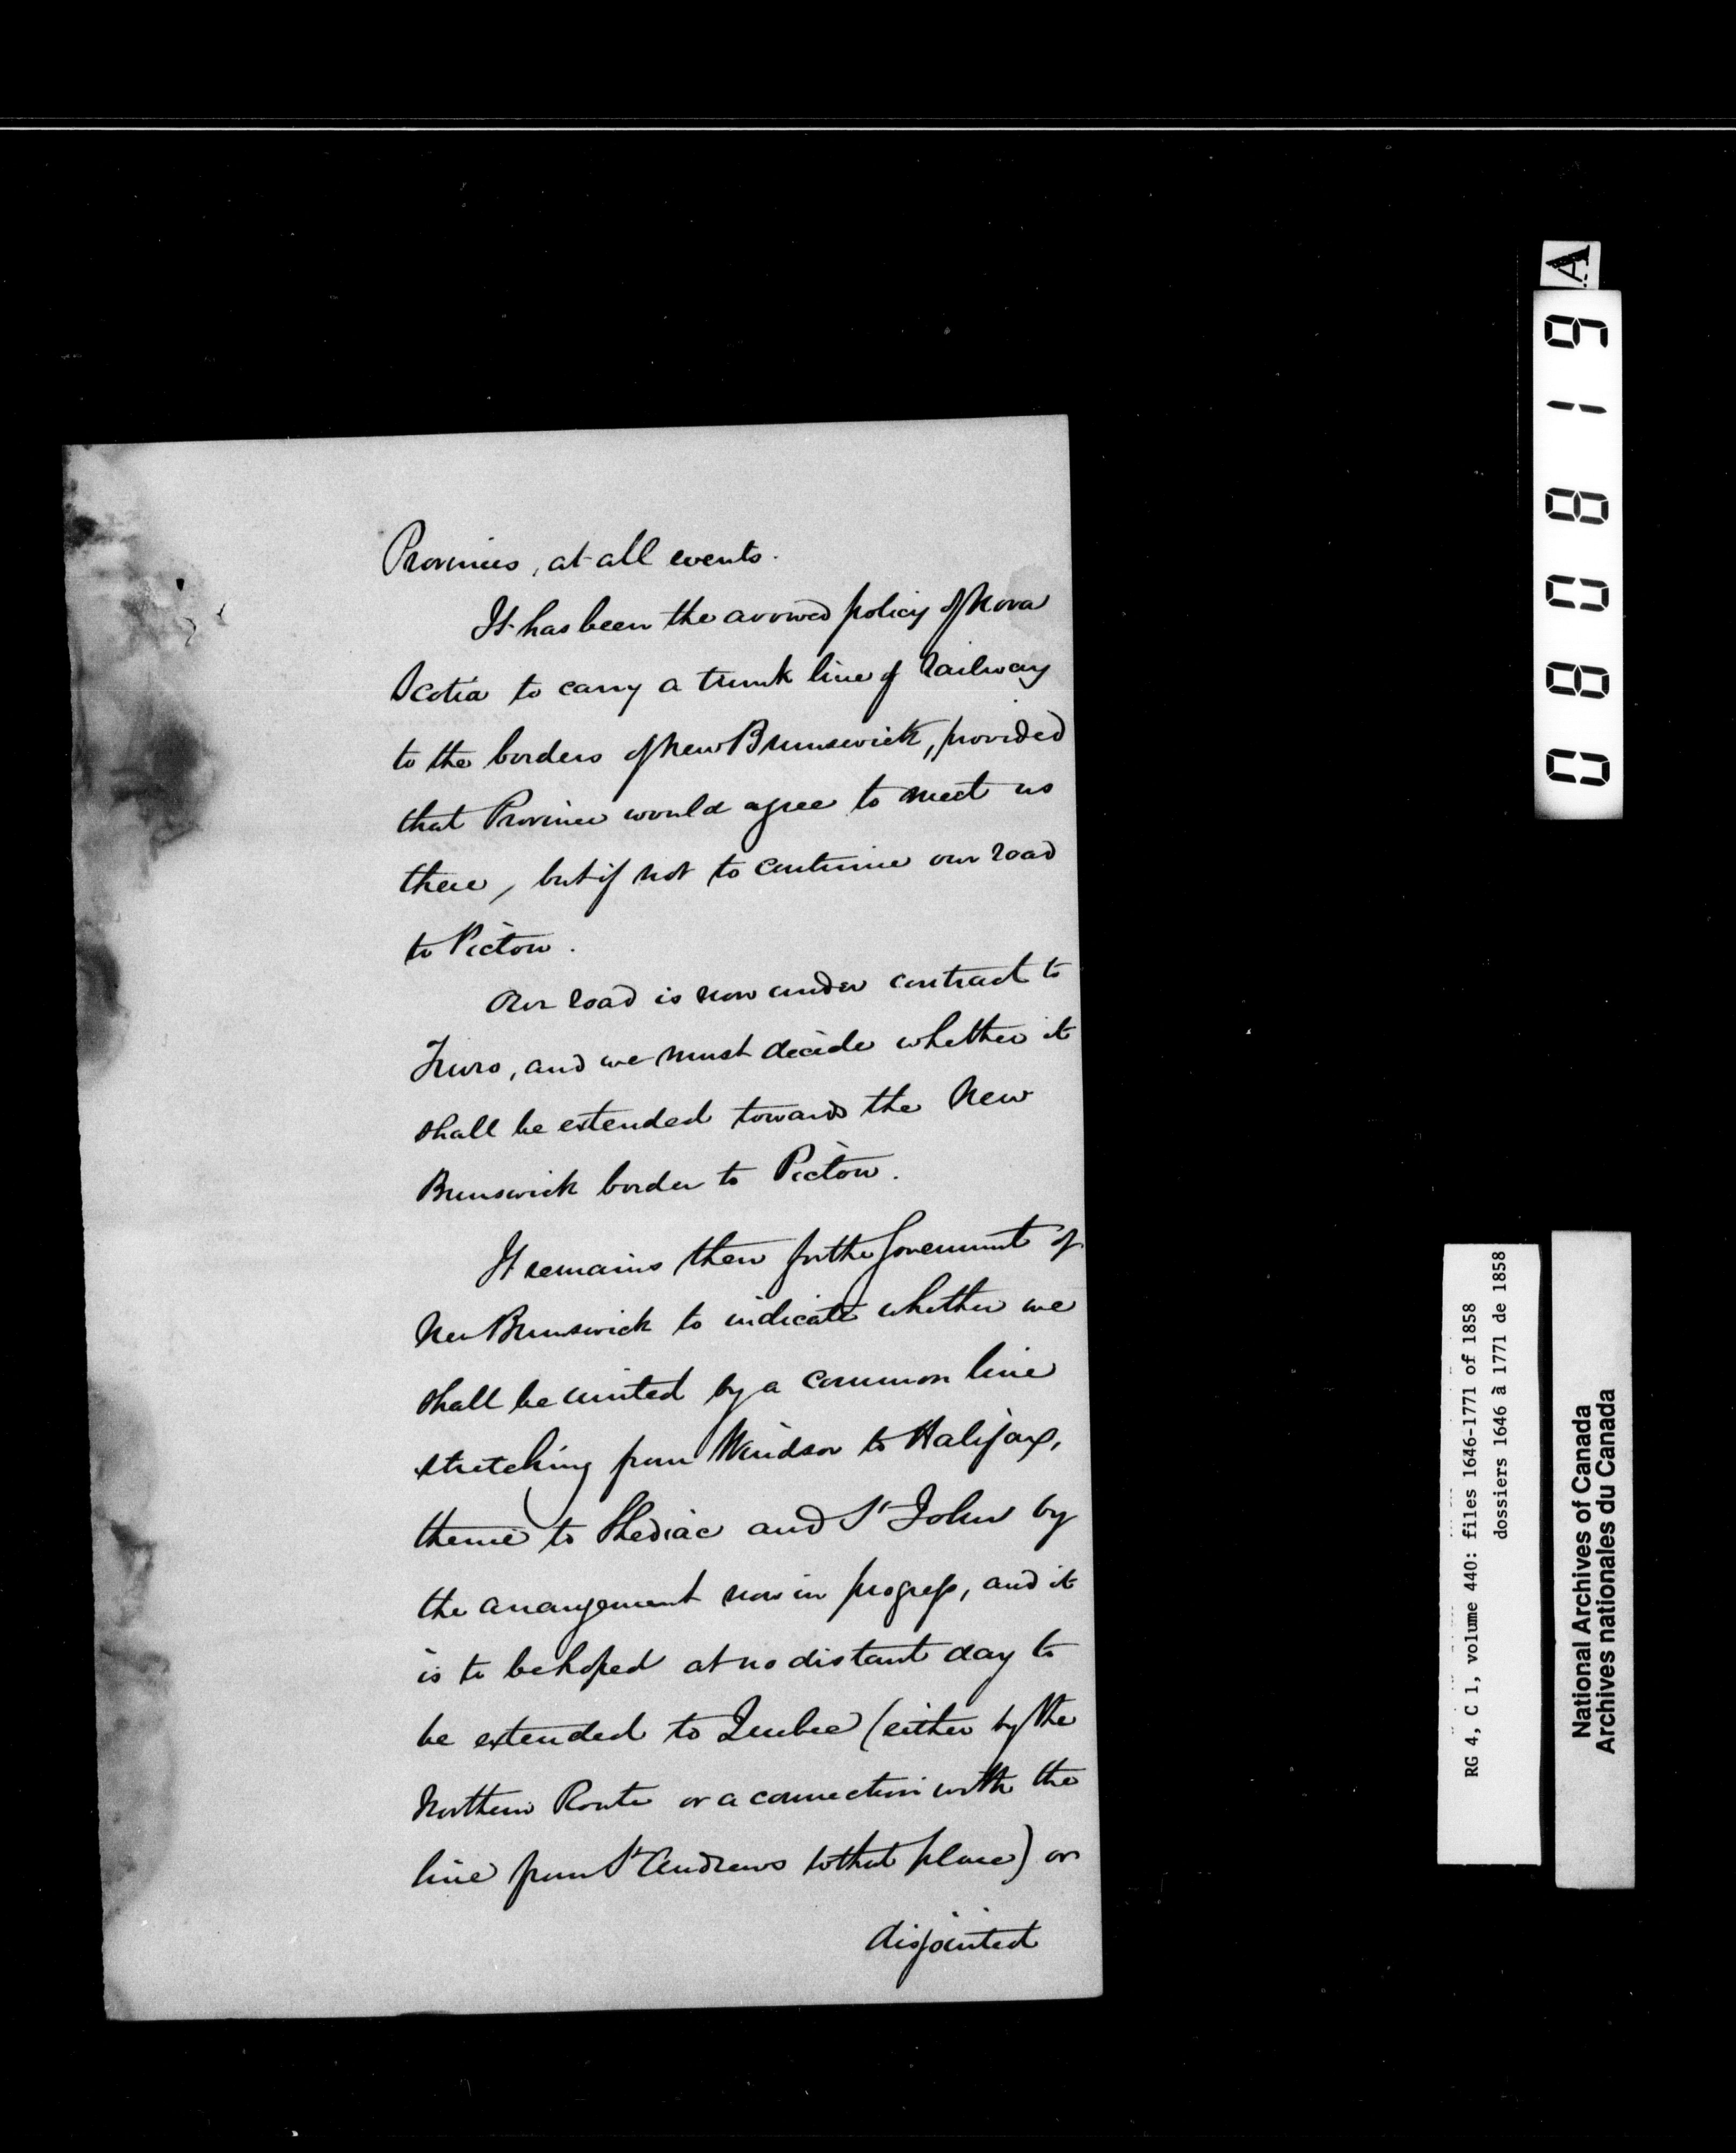 Provinces, at all events.
It has been the avowed policy of Nova
Scotia to carry a trunk line of Railway
to the borders of New Brunswick, provided
that Province would agree to meet us
there, but if not to continue our road
to Pictou.
Our road is now under contract to
Truro, and we must decide whether it
shall be extended towards the New
Brunswick border to Pictou.
It remains then for the Government of
New Brunswick to indicate whether we
shall be united by a common line
stretching from Windsor to Halifax,
thence to Shediac and St John by
the arrangement now in progress, and it
is to be hoped at no distant day to
be extended to Quebec (either by the
Northern Route or a connection with the
line from St Andrews to that place) or
disjointed
080819 A
RG 4, C 1, volume 440: files 1646-1771 of 1858
dossiers 1646 à 1771 de 1858
National Archives of Canada
Archives nationales du Canada